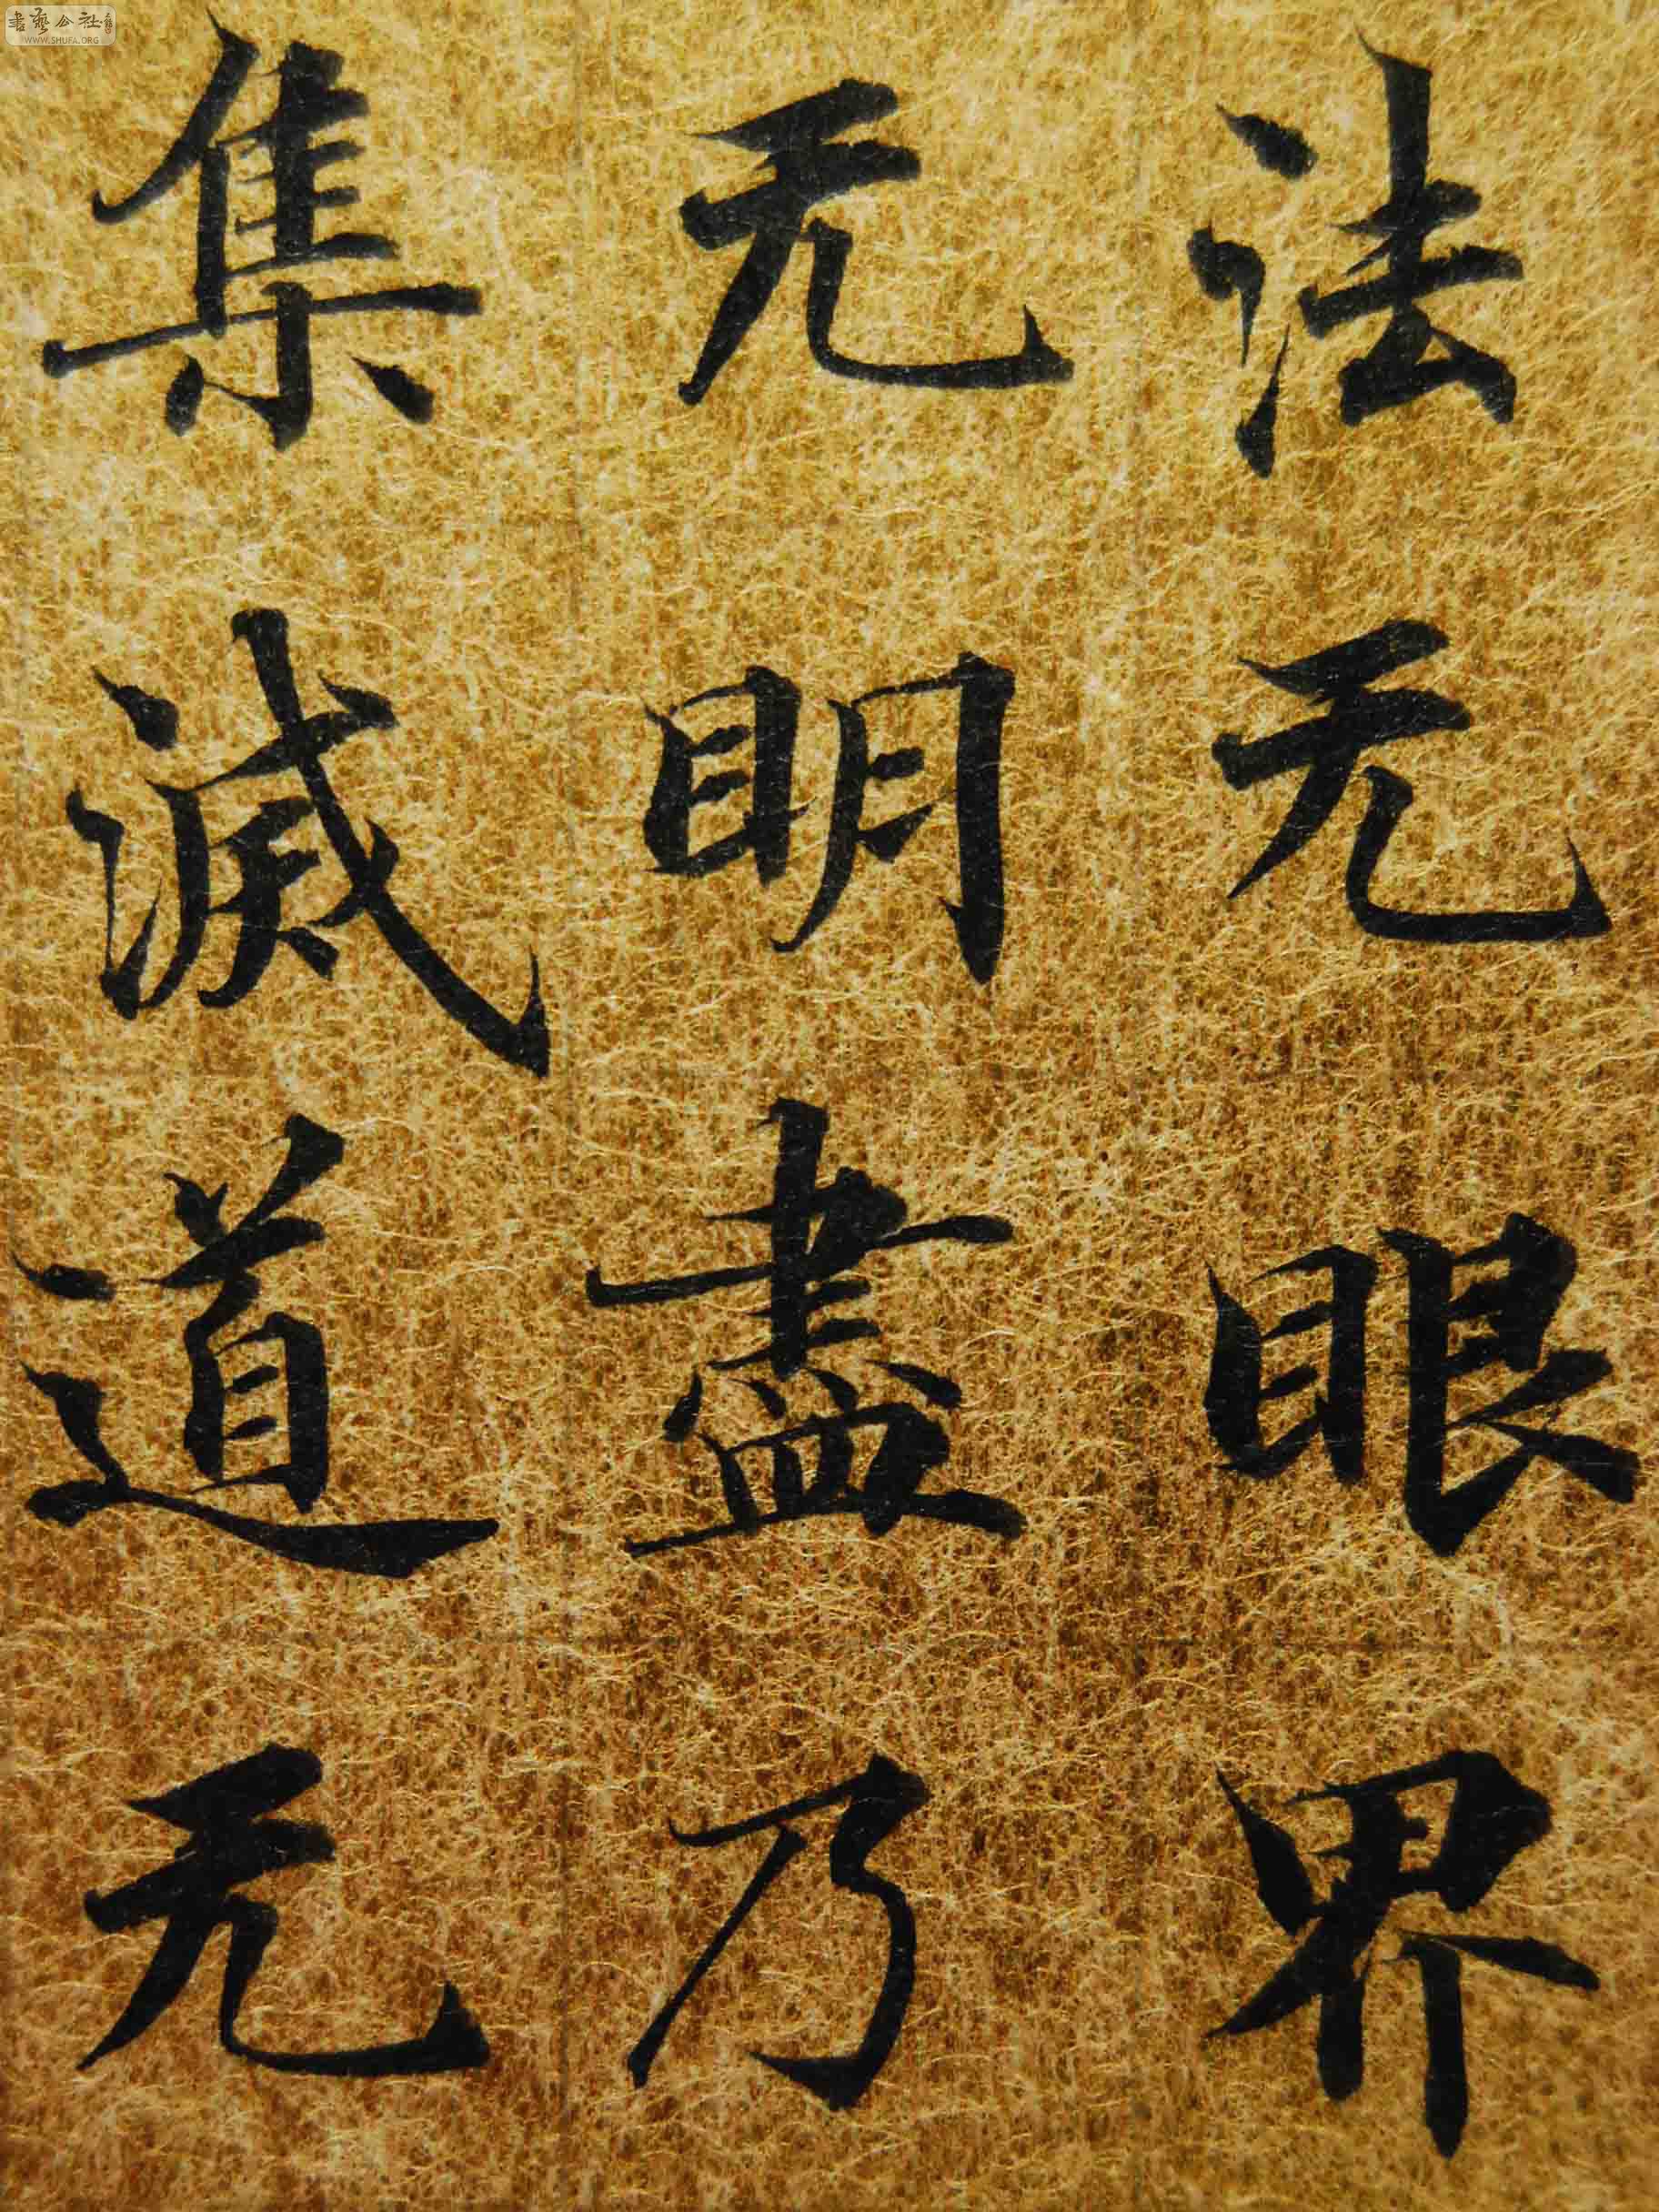 法无眼界
无明盡乃
集滅道无
書藝公社
WWW.SHUFA.ORG